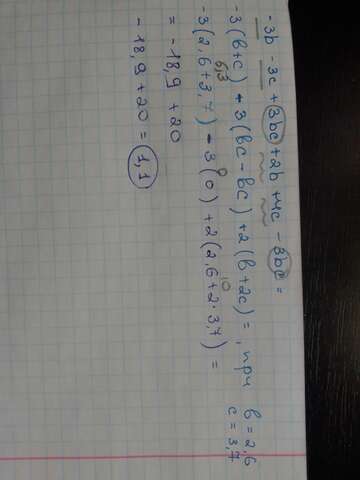 -3b - 3c + 3bc + 2b + 4c - 3bc =
-3(b+c) + 3(bc - bc) + 2(b+2c) = , при b = 2,6
c = 3,7
6,3 0 10
-3(2,6 + 3,7) - 3(0) + 2(2,6 + 2·3,7) =
= -18,9 + 20
-18,9 + 20 = 1,1